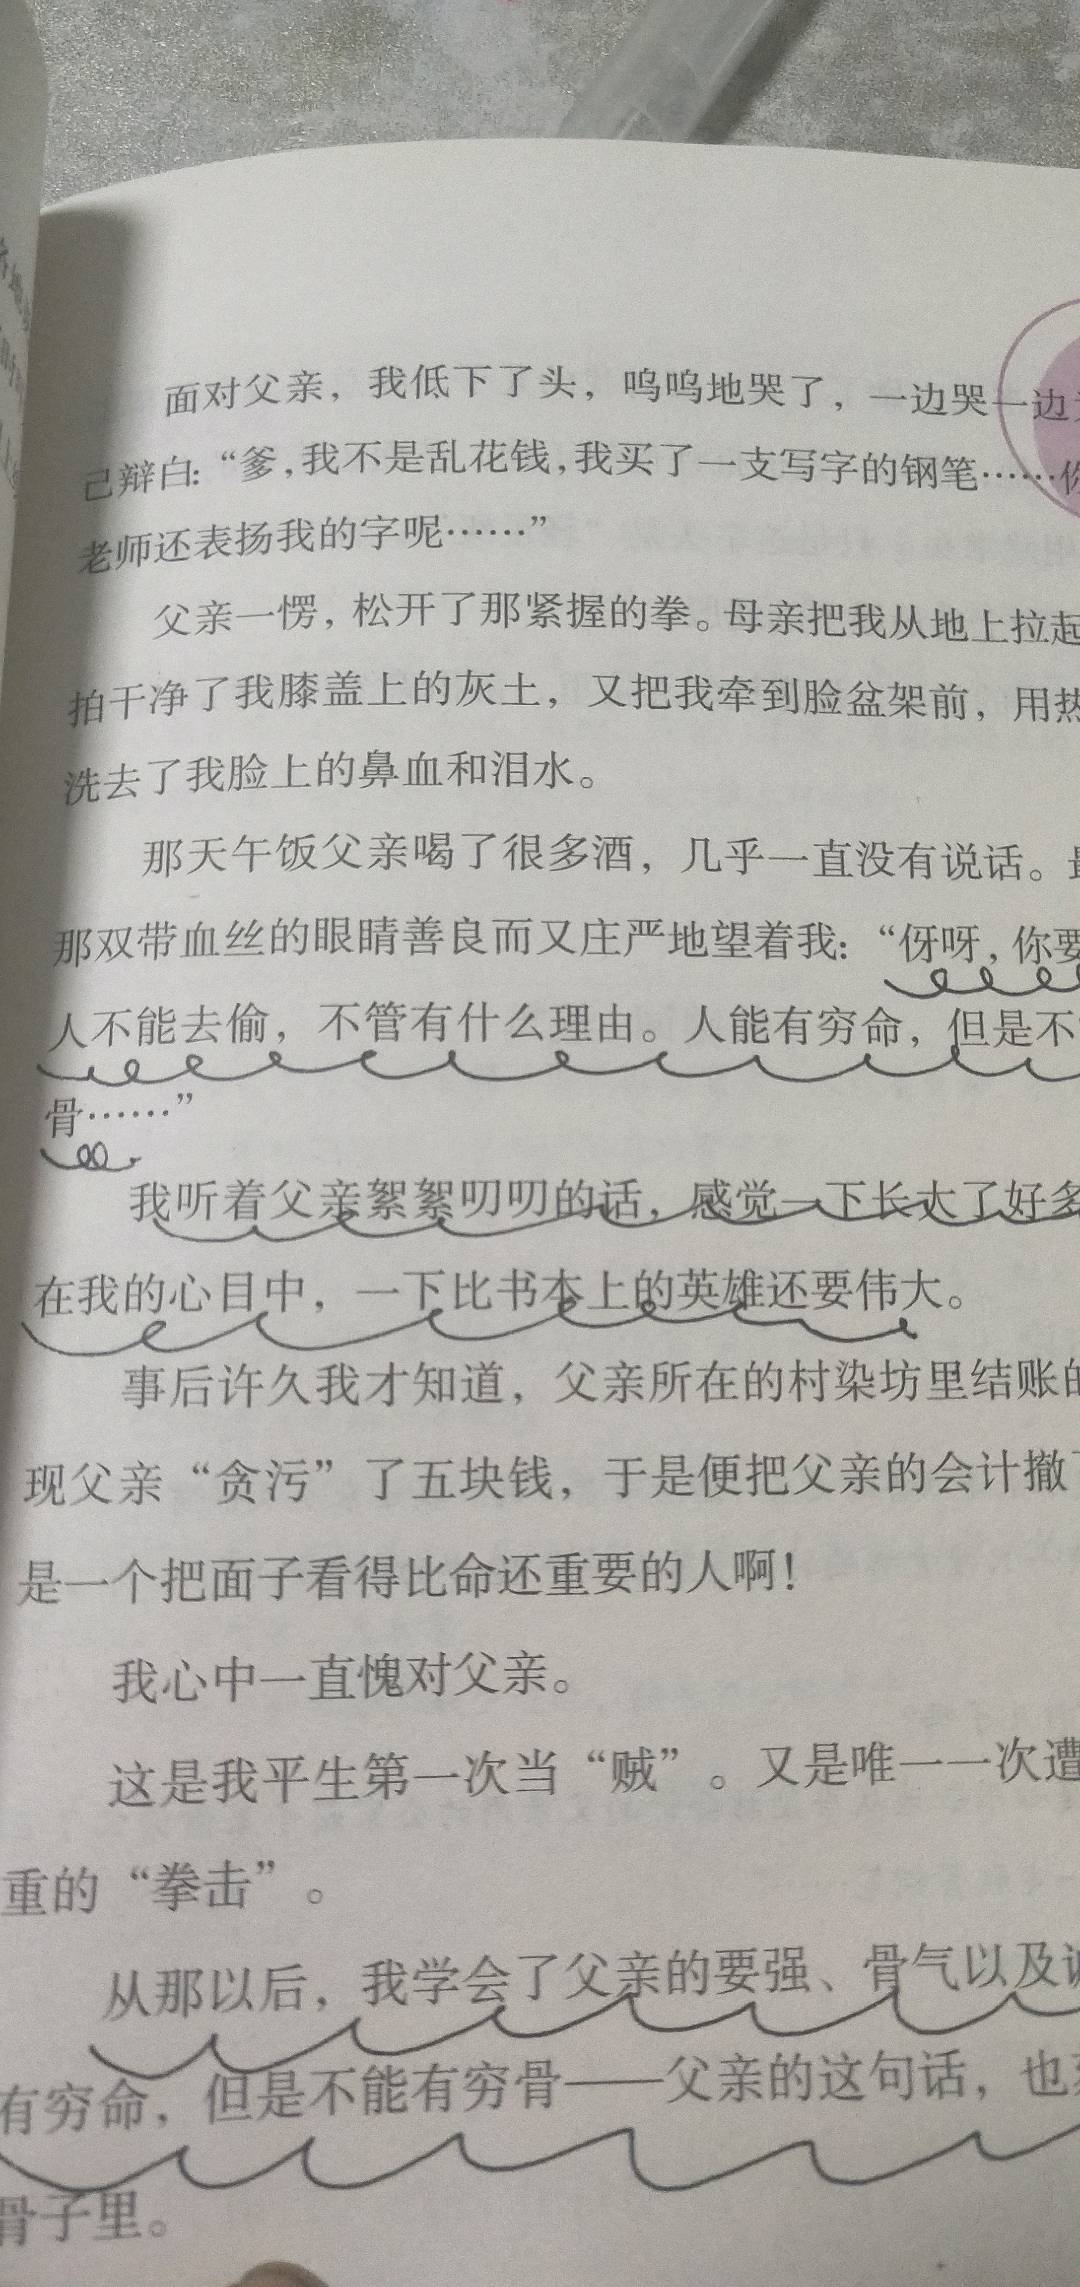 面对父亲，我低下了头，呜呜地哭了，一边哭一边
己辩白：“爹，我不是乱花钱，我买了一支写字的钢笔……你
老师还表扬我的字呢……”
父亲一愣，松开了那紧握的拳。母亲把我从地上拉起
拍干净了我膝盖上的灰土，又把我牵到脸盆架前，用热
洗去了我脸上的鼻血和泪水。
那天午饭父亲喝了很多酒，几乎一直没有说话。
那双带血丝的眼睛善良而又庄严地望着我：“伢呀，你要
人不能去偷，不管有什么理由。人能有穷命，但是不
骨……”
我听着父亲絮絮叨叨的话，感觉一下长大了好多
在我的心目中，一下比书本上的英雄还要伟大。
事后许久我才知道，父亲所在的村染坊里结账的
现父亲“贪污”了五块钱，于是便把父亲的会计撤
是一个把面子看得比命还重要的人啊！
我心中一直愧对父亲。
这是我平生第一次当“贼”。又是唯一一次遭
重的“拳击”。
从那以后，我学会了父亲的要强、骨气以及
有穷命，但是不能有穷骨——父亲的这句话，也
骨子里。